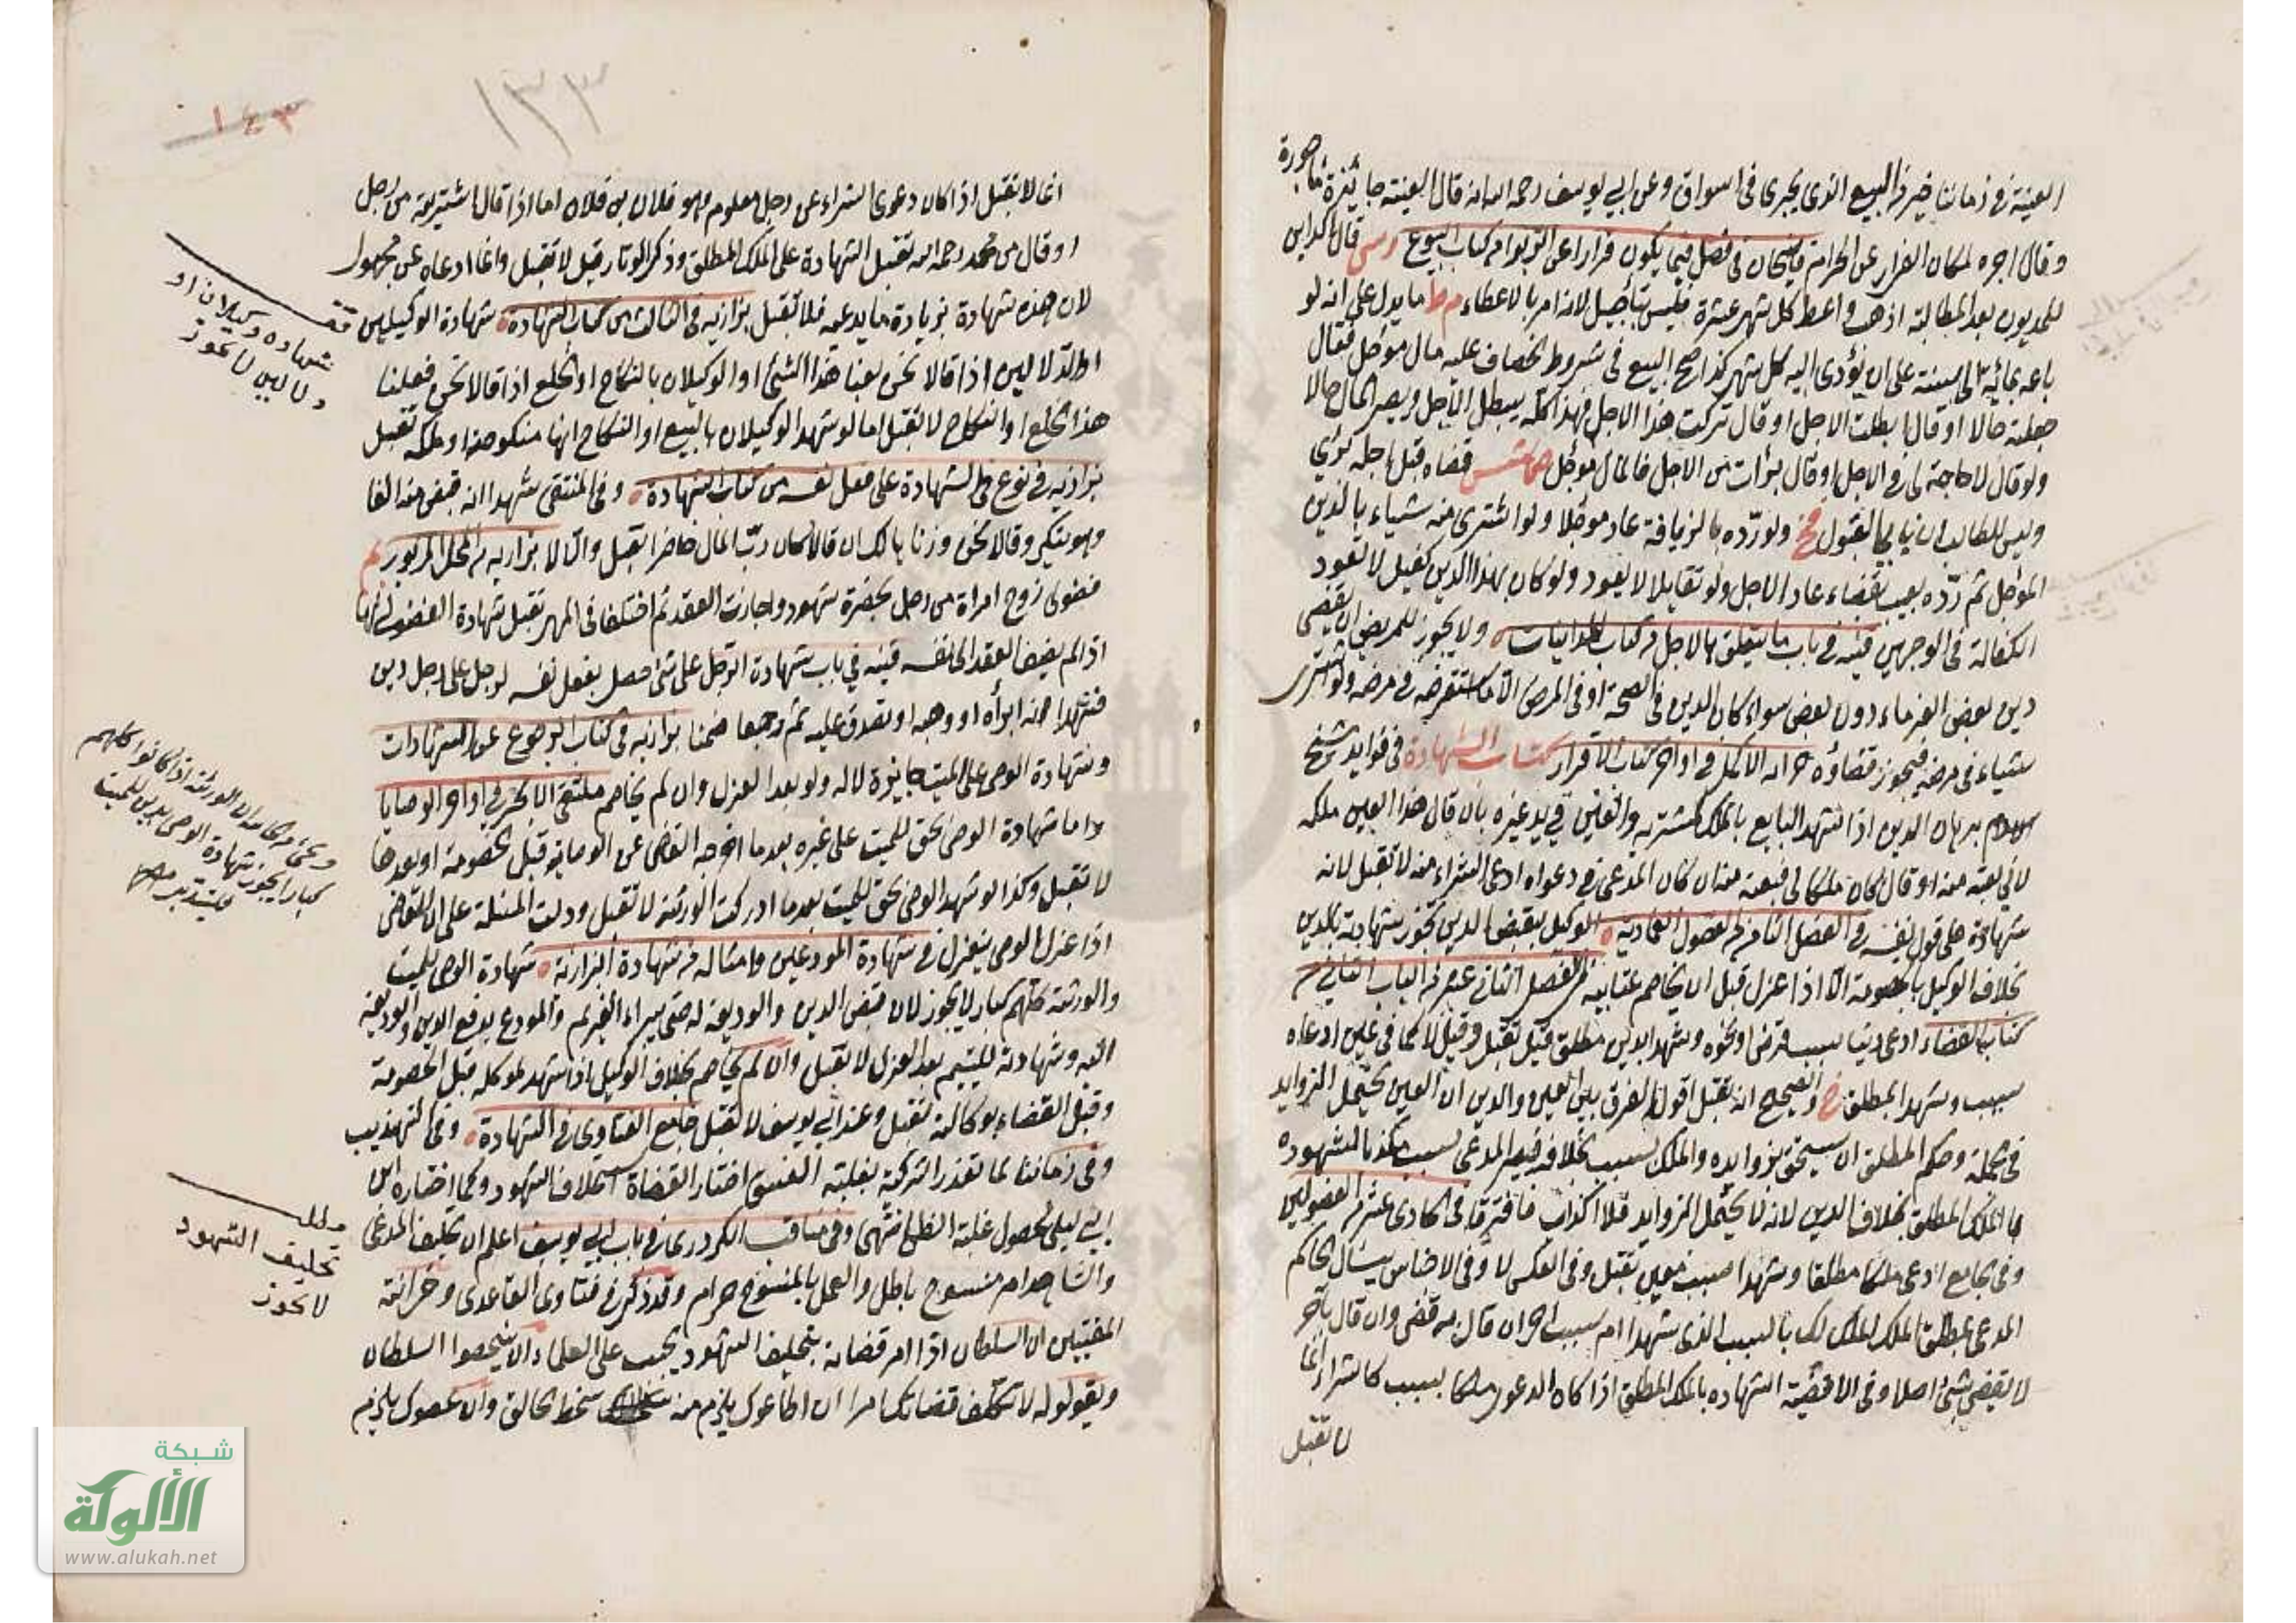 العينة في زماننا خير من البيع الذي يجري في اسواق وعن ابي يوسف رحمه الله انه قال العينة جائزة مأجورة
وقال اجره لمكان الفرار عن الحرام قاضيخان في فصل فيما يكون فرارا عن الربوا من كتاب البيوع قال الداين
للمديون بعد المطالبة اذهب واعط كل شهر عشرة فليس بتأجيل لانه امر بالاعطاء مط ما يدل على انه لو
باعه بمائة الى سنة على ان يؤدي اليه كل شهر كذا صح البيع في شروط الخصاف عليه مال مؤجل فقال
جعلته حالا او قال ابطلت الاجل او قال تركت هذا الاجل فهذا كله يبطل الاجل ويصير المال حالا
ولو قال لا حاجة لي في الاجل او قال برأت من الاجل فالمال مؤجل قضاه قبل اجله
وليس للطالب ان يأبى القبول ولو رده بالزيافة عاد مؤجلا ولو اشترى منه شياء بالدين
المؤجل ثم رده بعيب بقضاء عاد الاجل ولو تقايلا لا يعود ولو كان بهذا الدين كفيل لا تعود
الكفالة في الوجهين قنيه في باب ما يتعلق بالاجل من كتاب المداينات ولا يجوز للمريض ان يقضي
دين بعض الغرماء دون بعض سواء كان الدين في الصحة او في المرض الا ما استقرضه في مرضه ولو اشترى
شياء في مرضه فيجوز قضاؤه خزانه الاكمل في اواخر كتاب الاقرار كتاب الشهادة في فوايد شيخ
الاسلام برهان الدين اذا شهد البايع بالملك لمشتريه والعين في يد غيره بان قال هذا العين ملكه
لاني بعته منه او قال كان ملكا لي فبعته منه ان كان المدعي في دعواه ادعى الشراء منه لا تقبل لانه
شهادة على قول نفسه في الفصل الثامن من الفصول العمادية الوكيل بقبض الدين تجوز شهادته بالدين
بخلاف الوكيل بالخصومة الا اذا عزل قبل ان يخاصم عتابيه من الفصل الثاني عشر من الباب الثاني من
كتاب القضاء ادعى دينا بسبب قرض او نحوه وشهدا بدين مطلق قيل تقبل وقيل لا كما في عين ادعاه
بسبب وشهد المطلق والصحيح انه تقبل اقول الفرق بين العين والدين ان العين يحتمل الزوايد
في الجملة وحكم المطلق ان يستحق بزوايده والملك بسبب بخلافه فيصير المدعي بسبب مكذبا لشهوده
بالملك المطلق بخلاف الدين لانه لا يحتمل الزوايد فلا اكذاب فافترقا في الحادي عشر من الفصولين
وفي الجامع ادعى ملكا مطلقا وشهدا بسبب معين تقبل وفي العكس لا وفي الاجناس يسأل الحاكم
المدعي بمطلق الملك الملك لك بالسبب الذي شهدا ام بسبب اخر ان قال به قضى وان قال بآخر
لا يقضي بشئ اصلا وفي الاقضية الشهاده بالملك المطلق اذا كان الدعوى ملكا بسبب كالشراء انما
لا تقبل
١٣٣
١٤٣
انما لا تقبل اذا كان دعوى الشراء عن رجل معلوم وهو فلان بن فلان اما اذا قال اشتريته من رجل
او قال من محمد رحمه الله تقبل الشهادة على الملك المطلق وذكر الوتار قيل لا تقبل وانما ادعاه عن مجهول
لان هذه شهادة بزيادة ما يدعيه فلا تقبل بزازيه في الثالث من كتاب الشهادة شهادة الوكيلين
او الدلالين اذا قالا نحن بعنا هذا الشئ او الوكيلان بالنكاح او الخلع اذا قالا نحن فعلنا
هذا الخلع او النكاح لا تقبل اما لو شهد الوكيلان بالبيع او النكاح انها منكوحته او ملكه تقبل
بزازيه في نوع في الشهادة على فعل نفسه من كتاب الشهادة وفي المنتقى شهدا انه قبض منه الفا
وهو ينكر وقالا نحن وزنا بالك ان قالا كان رب المال حاضرا تقبل والا لا بزازيه من المحل المزبور
فضولي زوج امراة من رجل بحضرة شهود واجازت العقد ثم اختلفا في المهر تقبل شهادة الفضولي
اذا لم يضف العقد الى نفسه قنيه في باب شهادة الرجل على شئ حصل بفعل نفسه لرجل على رجل دين
فشهدا انه ابرأه او وهبه او تصدق عليه ثم رجعا ضمنا بزازيه في كتاب الرجوع عن الشهادات
وشهادة الوصي على الميت جايزة لا له ولو بعد العزل وان لم يخاصم ملتقى الابحر في اواخر الوصايا
واما شهادة الوصي بحق للميت على غيره بعد ما اخرجه القاضي عن الوصاية قبل الخصومة او بعدها
لا تقبل وكذا لو شهد الوصي بحق للميت بعد ما ادركت الورثة لا تقبل ودلت المسئلة على ان القاضي
اذا عزل الوصي ينعزل في شهادة المودعين وامثاله من شهادة البزازية شهادة الوصي للميت
والورثة كلهم كبار لا يجوز لان قبض الدين والوديعة له حتى يبراء الغريم والمودع بدفع الدين والوديعة
اليه وشهادته لليتيم بعد العزل لا تقبل وان لم يخاصم بخلاف الوكيل اذا شهد لموكله قبل الخصومة
وقبل القضاء بوكالته تقبل وعند ابي يوسف لا تقبل جامع الفتاوى في الشهادة وفي التهذيب
وفي زماننا لما تعذر التزكية بغلبة الفسق اختار القضاة استحلاف الشهود وكما اختاره ابن
ابي ليلى لحصول غلبة الظن انتهى وفي مناقب الكردري في باب ابي يوسف اعلم ان تحليف المدعي
والشاهد امر منسوخ باطل والعمل بالمنسوخ حرام وقد ذكر في فتاوى القاعدي وخزانة
المفتيين ان السلطان اذا امر قضاته بتحليف الشهود يجب على العلماء ان ينصحوا السلطان
ويقولوا له لا تكلف قضاتك امرا ان اطاعوك يلزم منه سخط الخالق وان عصوك يلزم
شهاده وكيلان او
دلالين لا تجوز
كبارا يجوز شهادة الوصي بدين للميت
مطلب
تحليف الشهود
لا تجوز
شبكة
الألوكة
www.alukah.net